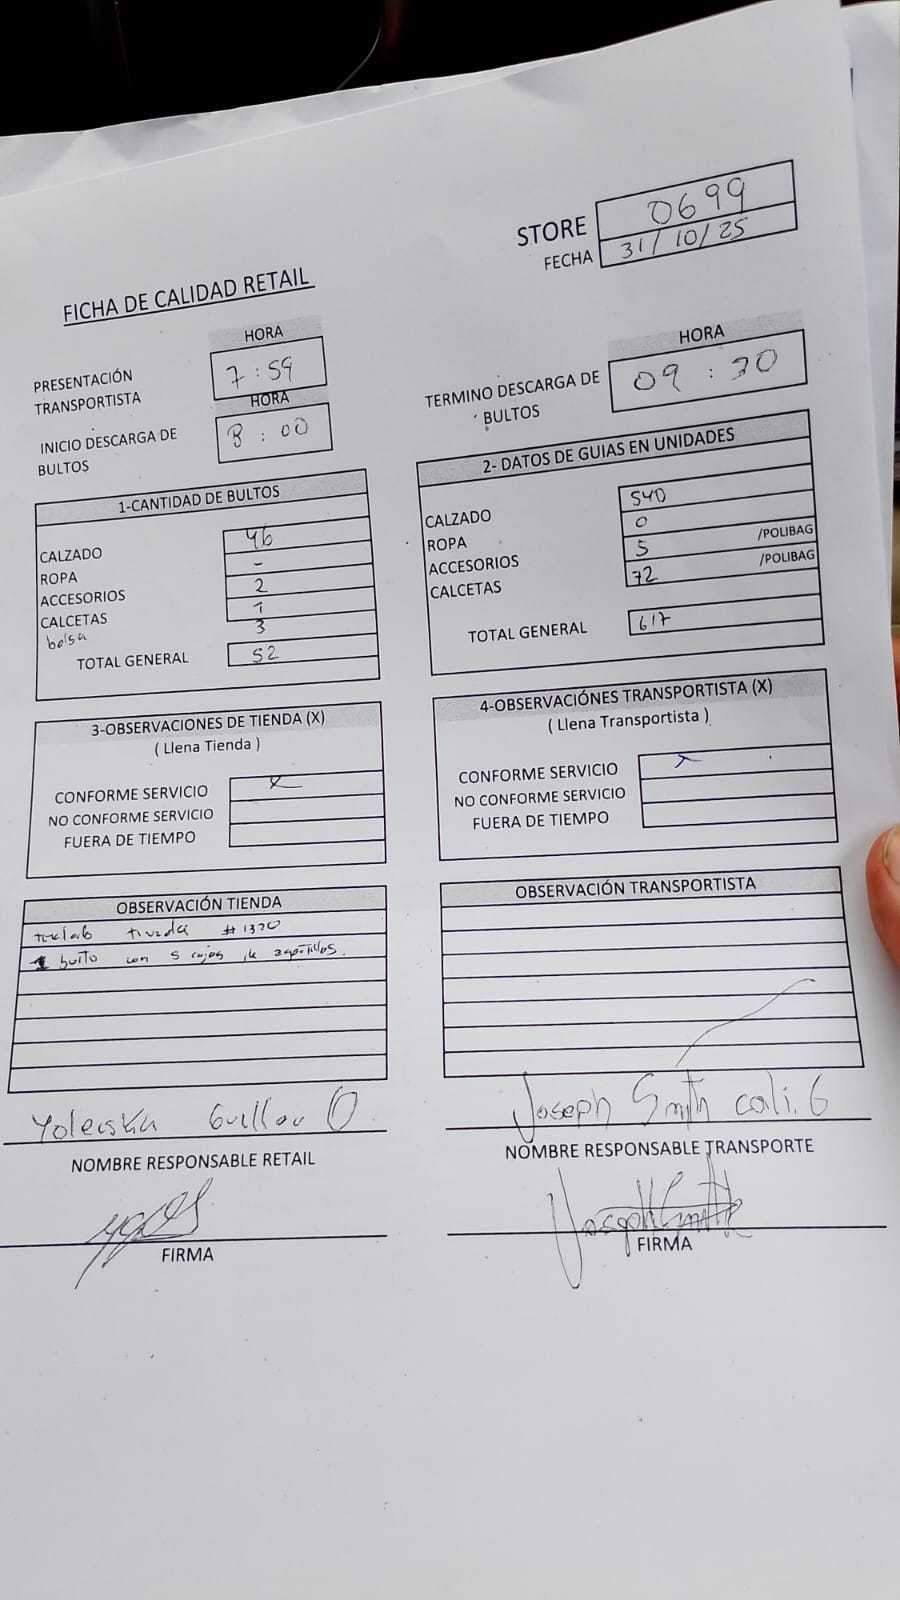 STORE 0699
FECHA 31/10/25
FICHA DE CALIDAD RETAIL
HORA
PRESENTACIÓN TRANSPORTISTA 7:59
HORA
INICIO DESCARGA DE BULTOS 8:00
HORA
TERMINO DESCARGA DE BULTOS 09:30
1-CANTIDAD DE BULTOS
CALZADO 46
ROPA -
ACCESORIOS 2
CALCETAS 1
bolsa 3
TOTAL GENERAL 52
2- DATOS DE GUIAS EN UNIDADES
CALZADO 540
ROPA 0
ACCESORIOS 5 /POLIBAG
CALCETAS 72 /POLIBAG
TOTAL GENERAL 617
3-OBSERVACIONES DE TIENDA (X)
( Llena Tienda )
CONFORME SERVICIO X
NO CONFORME SERVICIO
FUERA DE TIEMPO
4-OBSERVACIÓNES TRANSPORTISTA (X)
( Llena Transportista )
CONFORME SERVICIO X
NO CONFORME SERVICIO
FUERA DE TIEMPO
OBSERVACIÓN TIENDA
tienda #1320
1 bulto con 5 cajas de zapatillas.
OBSERVACIÓN TRANSPORTISTA
NOMBRE RESPONSABLE RETAIL
FIRMA
Joseph Smith
NOMBRE RESPONSABLE TRANSPORTE
FIRMA